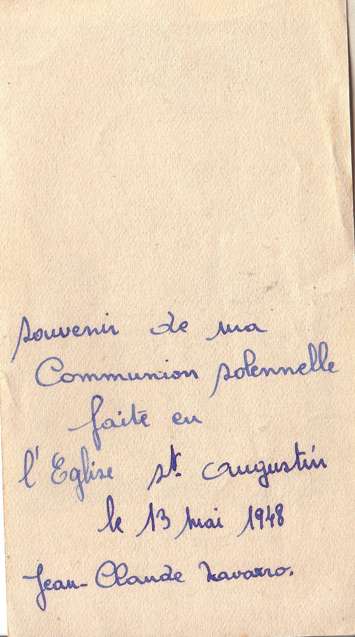 souvenir de ma
Communion solennelle
faite en
l'Eglise st. augustin
le 13 mai 1948
Jean-Claude navarro.